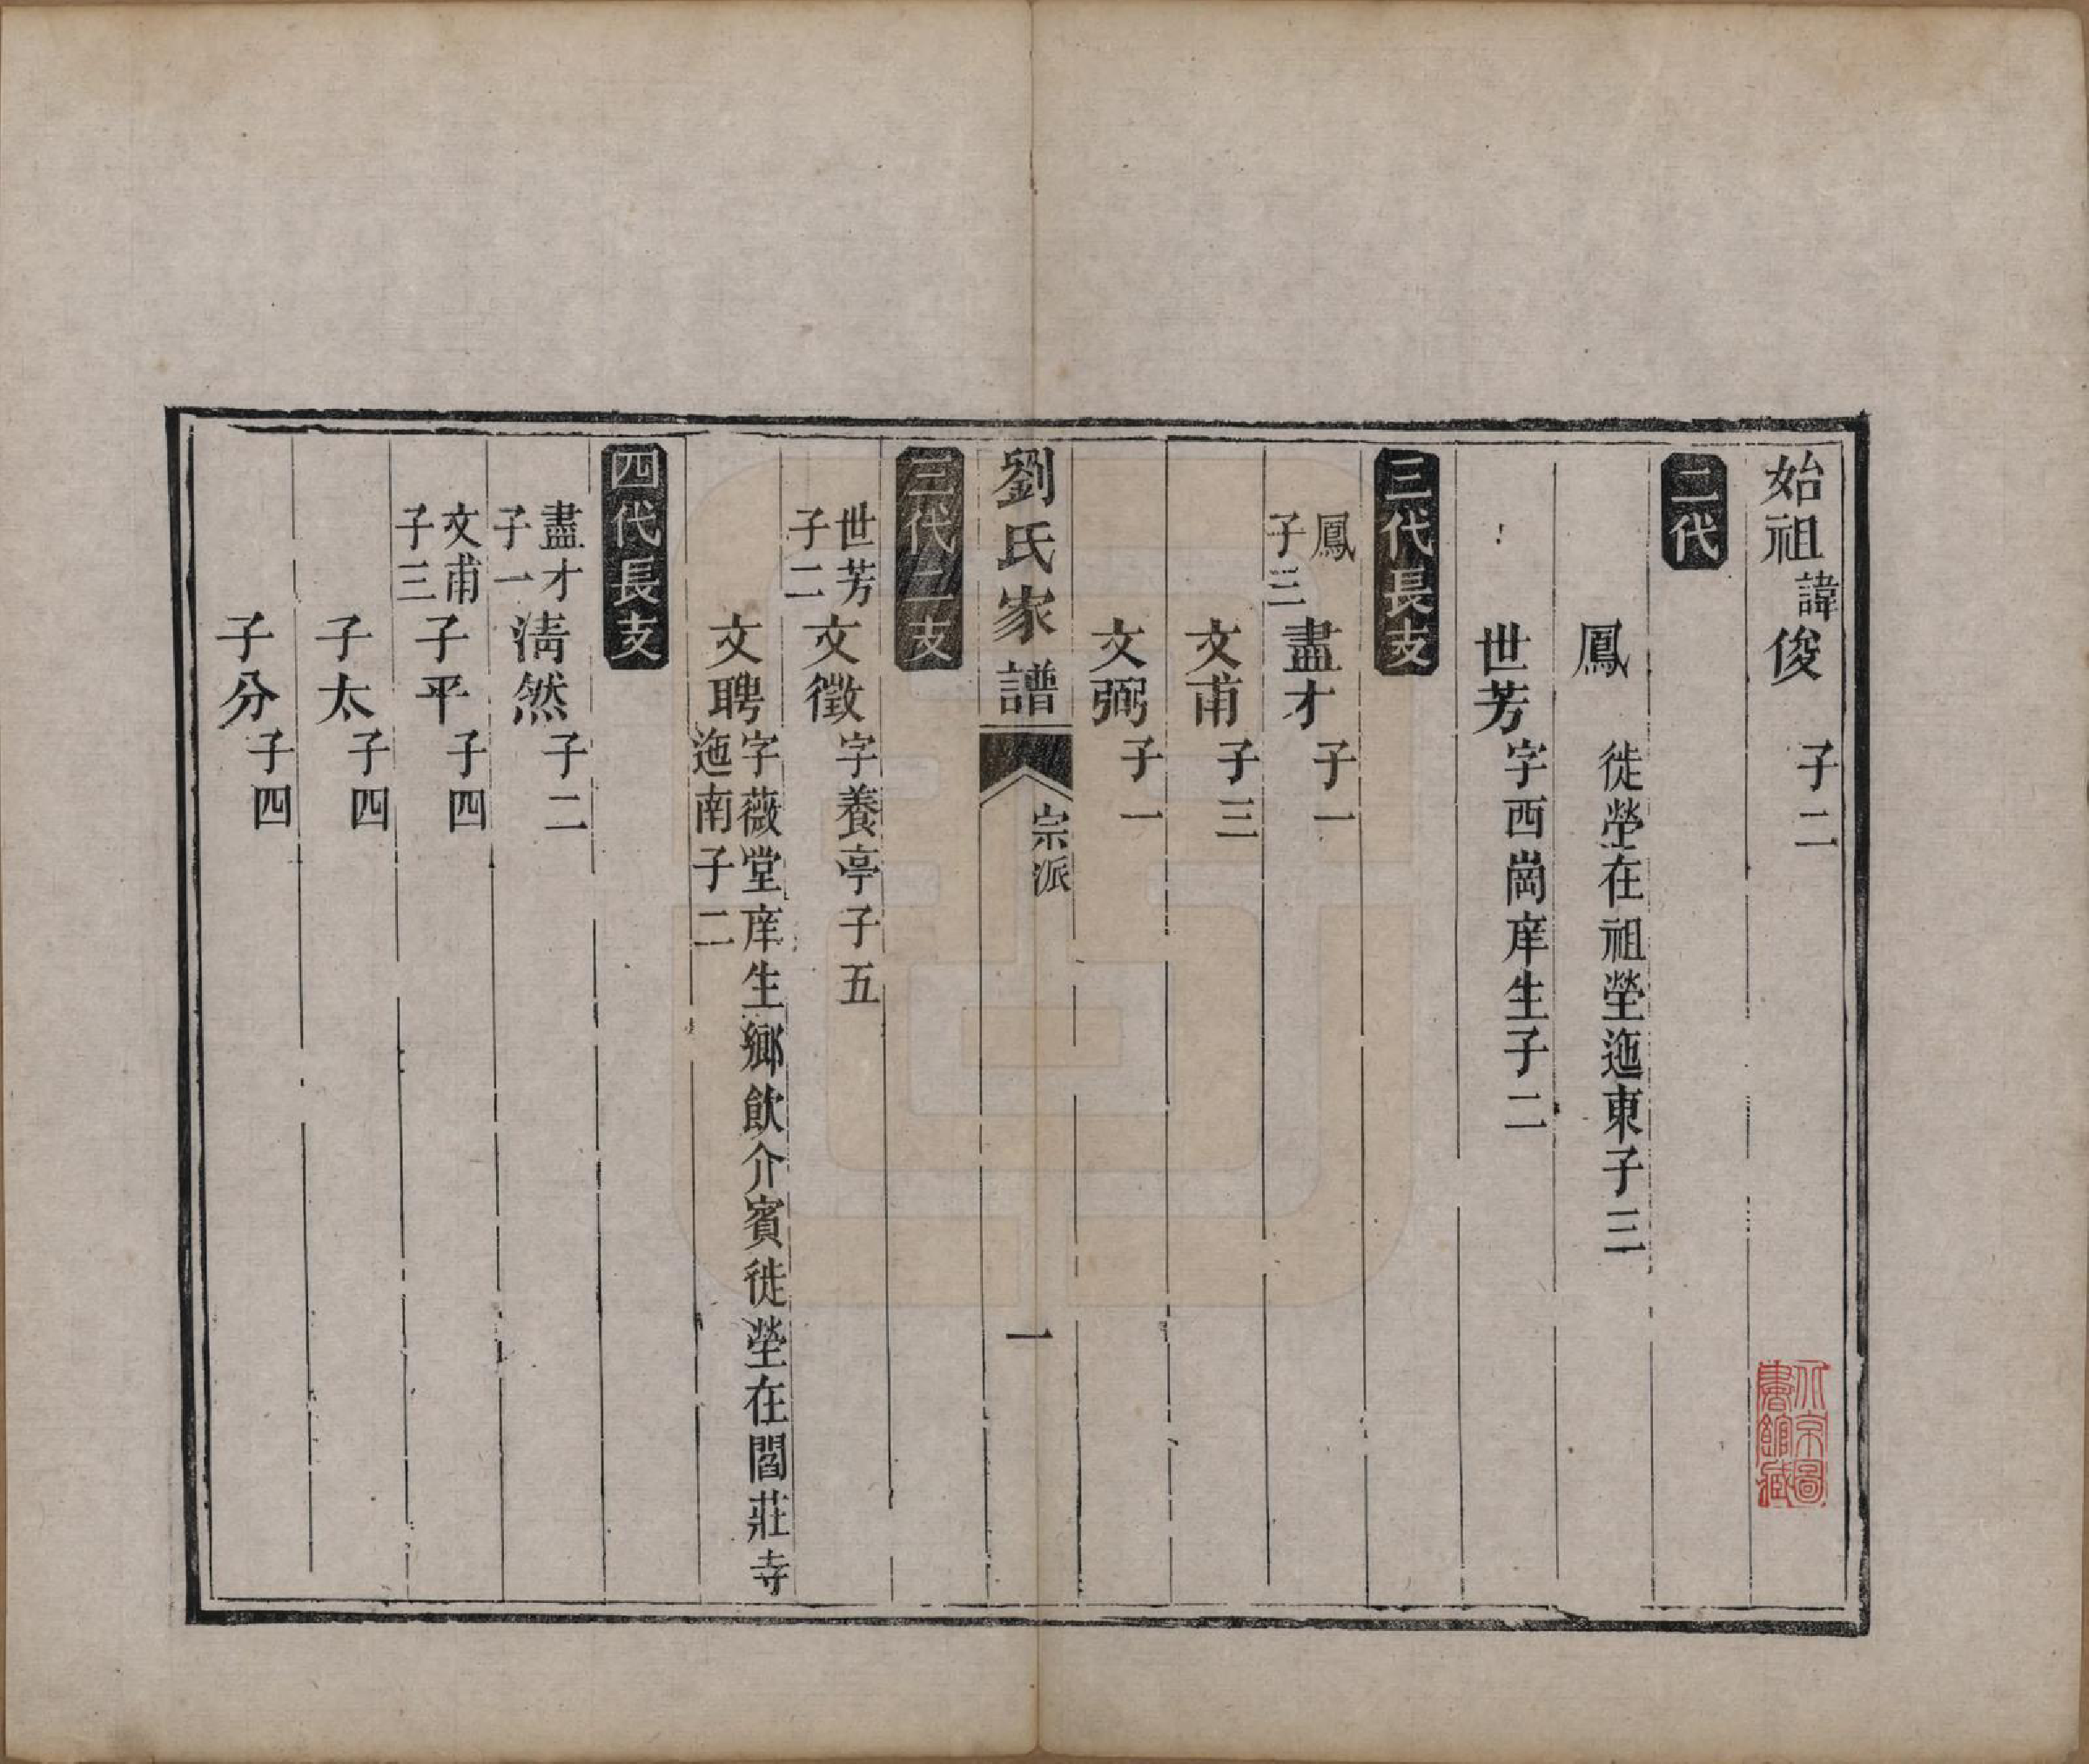 始祖諱俊 子二
二代
鳳 徙塋在祖塋迤東子三
世芳 字西崗庠生子二
三代長支
鳳子三 盡才 子一
文甫 子三
文弼 子一
劉氏家譜 宗派 一
三代二支
世芳子二 文徵 字養亭子五
文聘 字薇堂庠生鄉飲介賓徙塋在閻莊寺
迤南子二
四代長支
盡才子一 清然 子二
文甫子三 子平 子四
子太 子四
子分 子四
北京圖
書館藏